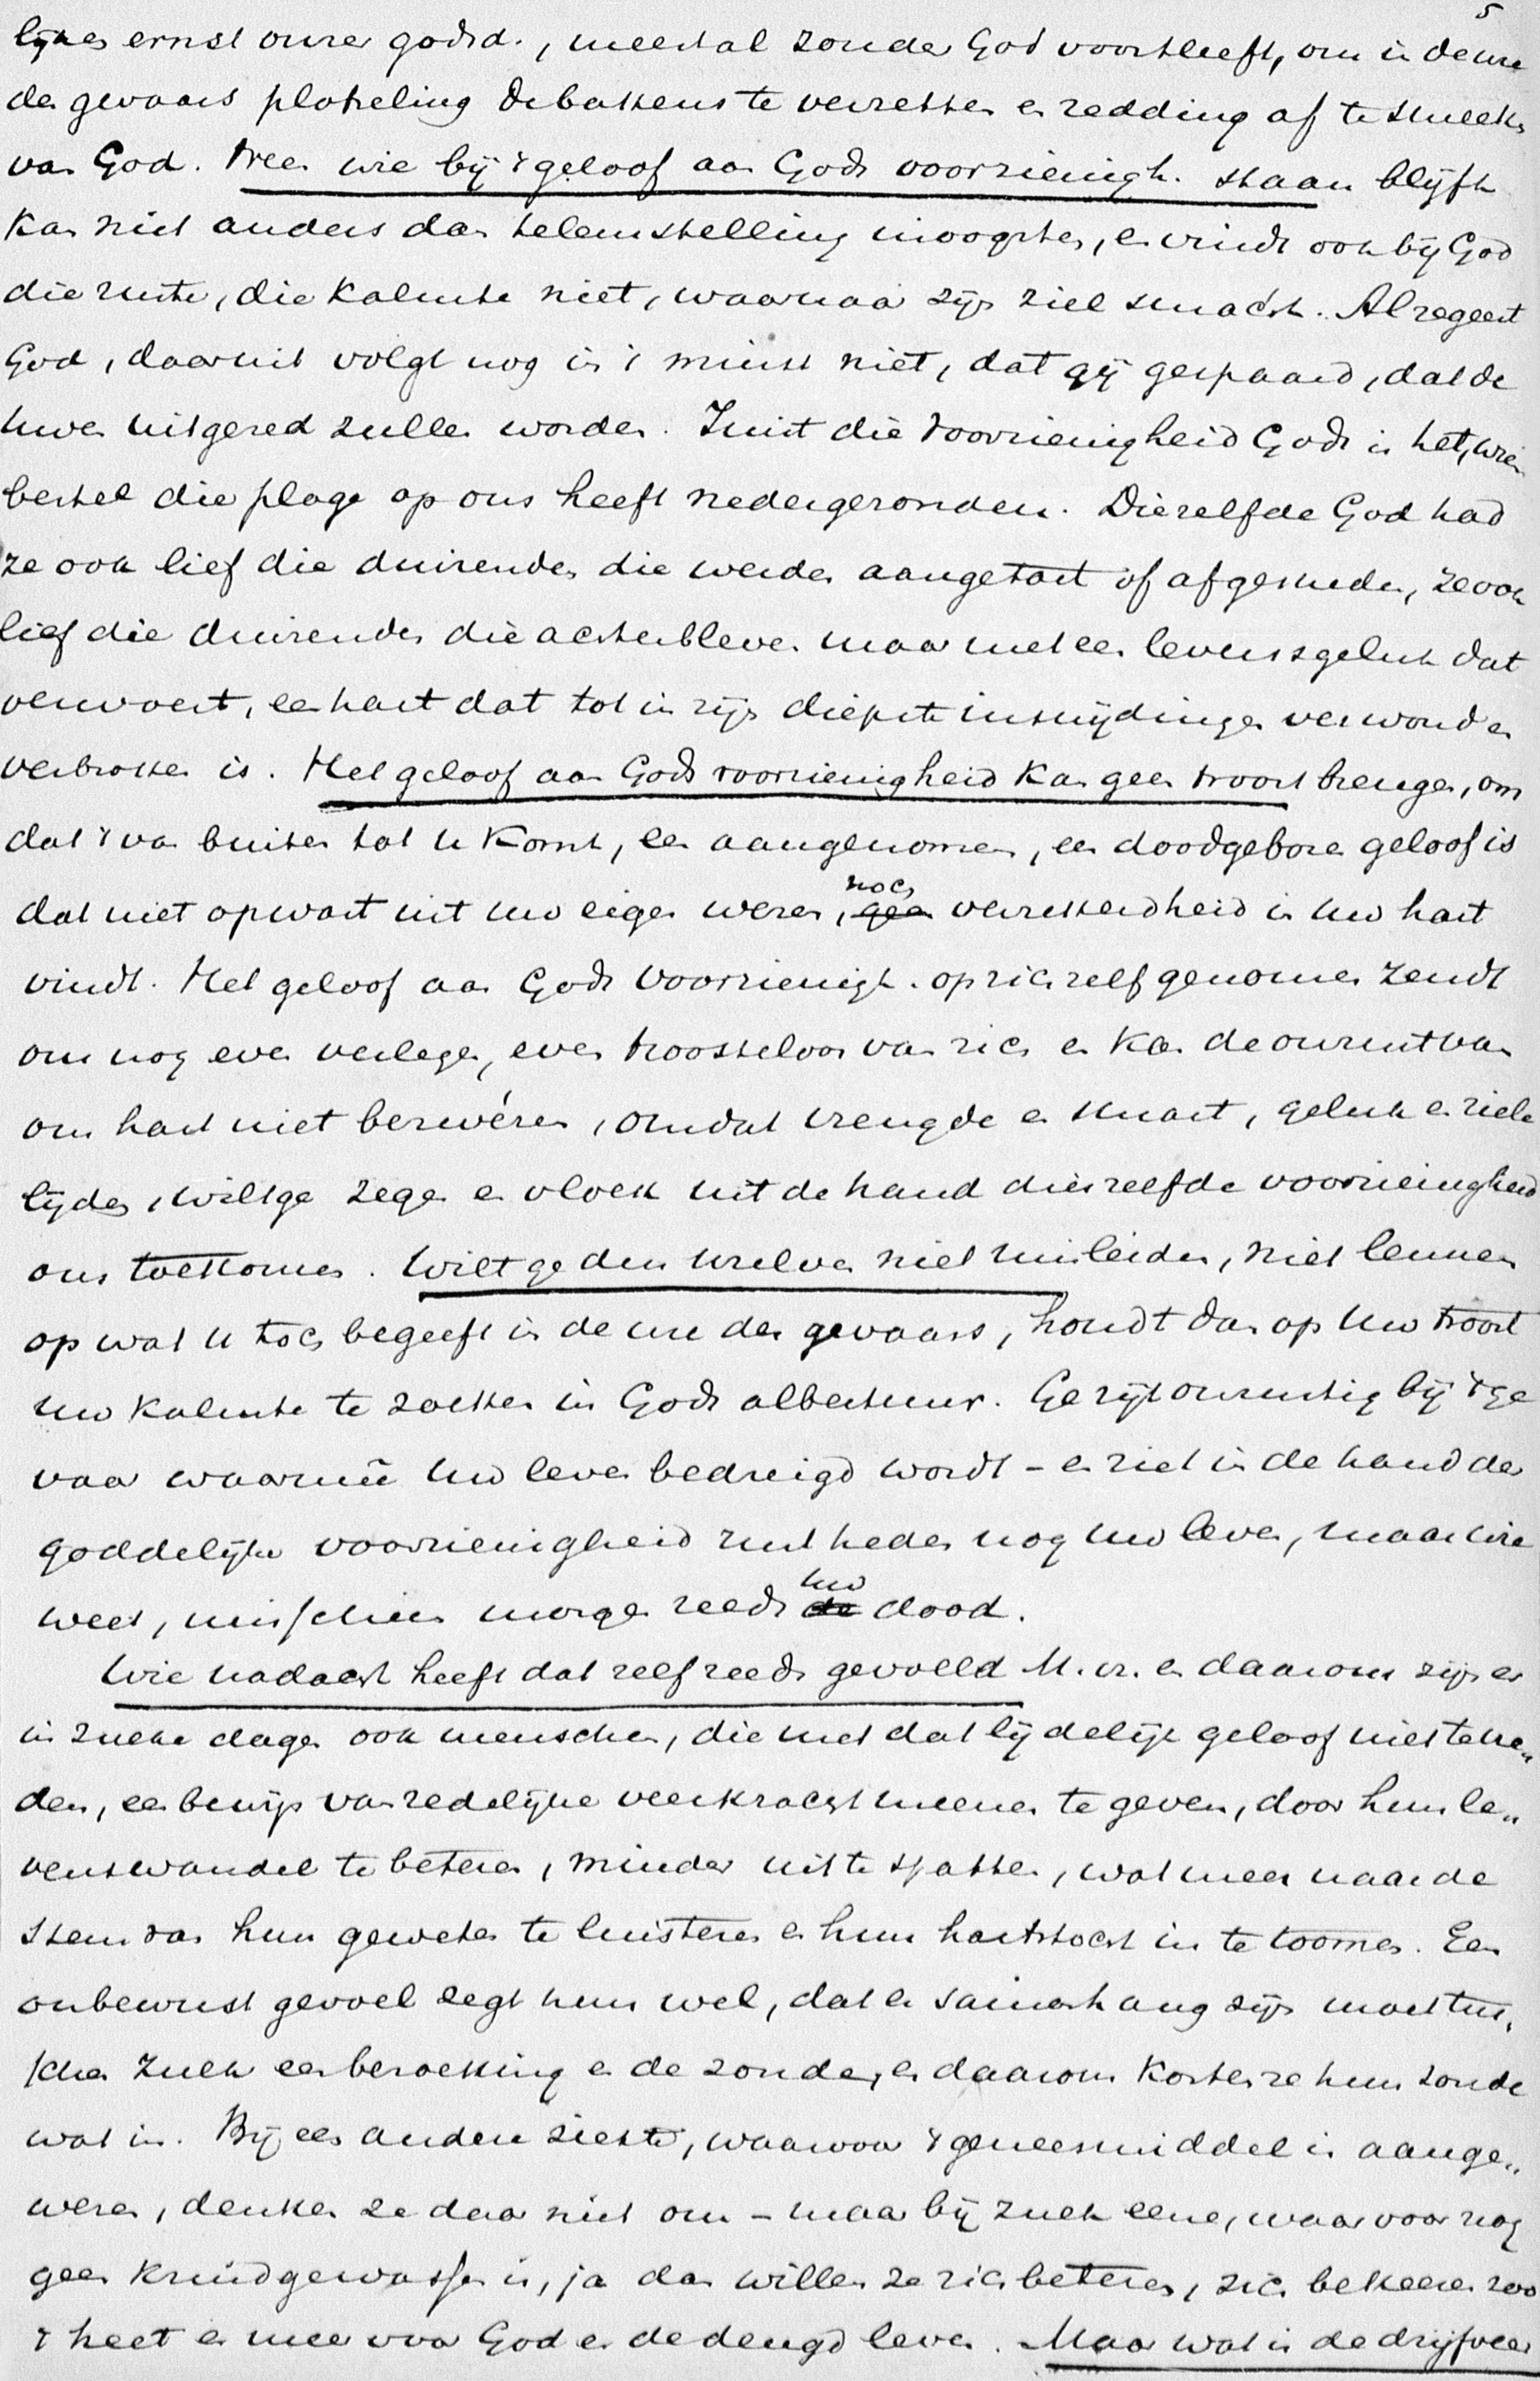 5
lijken ernst onzer godsd., meestal zonder God voortleeft, om in de ure
des gevaars plotseling de bakkens te verzetten en redding af te smeeken
van God. Neen wie bij 't geloof aan Gods voorzienigh. staan blijft
kan niet anders dan teleurstelling inoogsten, en vindt ook bij God
die ruste, die kalmte niet, waarnaar zijn ziel smacht. Al regeert
God, daaruit volgt nog in 't minst niet, dat gij gespaard, dat de
uwen uitgered zullen worden. Juist die voorzienigheid Gods is het, wier
bestel die plage op ons heeft nedergezonden. Diezelfde God had
ze ook lief die duizenden die werden aangetast of afgesneden, ze ook
lief die duizenden die achterbleven maar met een levensgeluk dat
verwoest, een hart dat tot in zijn diepste insnijdingen verwond en
verbroken is. Het geloof aan Gods voorzienigheid kan geen troost brengen, om
dat 't van buiten tot u komt, een aangenomen, een doodgeboren geloof is
dat niet opwast uit uw eigen wezen, noch verzekerdheid in uw hart
vindt. Het geloof aan Gods voorzienigh. op zich zelf genomen zendt
ons nog even verlegen, even troosteloos van zich en kan de onrust van
ons hart niet bezweren, omdat vreugde en smart, geluk en ziele
lijden, weltge zegen en vloek uit de hand diezelfde voorzienigheid
ons toekomen. Wilt ge den uzelven niet misleiden, niet leunen
op wat u toch begeeft in de ure des gevaars, houdt dan op uw troost
uw kalmte te zoeken in Gods albestuur. Ge zijt onrustig bij 't ge
vaar waarmeê uw leven bedreigd wordt – en ziet in de hand der
goddelijke voorzienigheid rust heden nog uw leven, maar wie
weet, misschien morgen reeds uw dood.
Wie nadacht heeft dat zelf reeds gevoeld M. vr. en daarom zijn er
in zulke dagen ook menschen, die met dat lijdelijk geloof niet tevre„
den, een bewijs van zedelijke veerkracht meenen te geven, door hun le„
venswandel te beteren, minder uit te spatten, wat meer naar de
stem van hun geweten te luisteren en hun hartstocht in te toomen. Een
onbewust gevoel zegt hun wel, dat er samenhang zijn moet tus„
schen zulk een bezoeking en de zonden, en daarom korten ze hun zonde
wat in. Bij een andere ziekte, waarvoor 't geneesmiddel is aange„
wezen, denken ze daar niet om – maar bij zulk eene, waarvoor nog
geen kruid gewassen is, ja dan willen ze zich beteren, zich bekeeren zoo
't heet en meer voor God en de deugd leven. Maar wat is de drijfveer